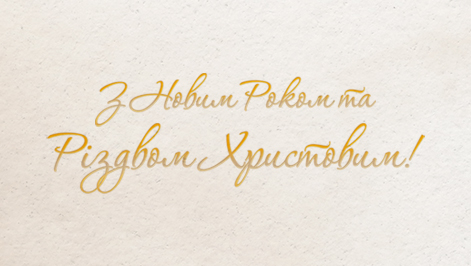 З Новим Роком та
Різдвом Христовим!